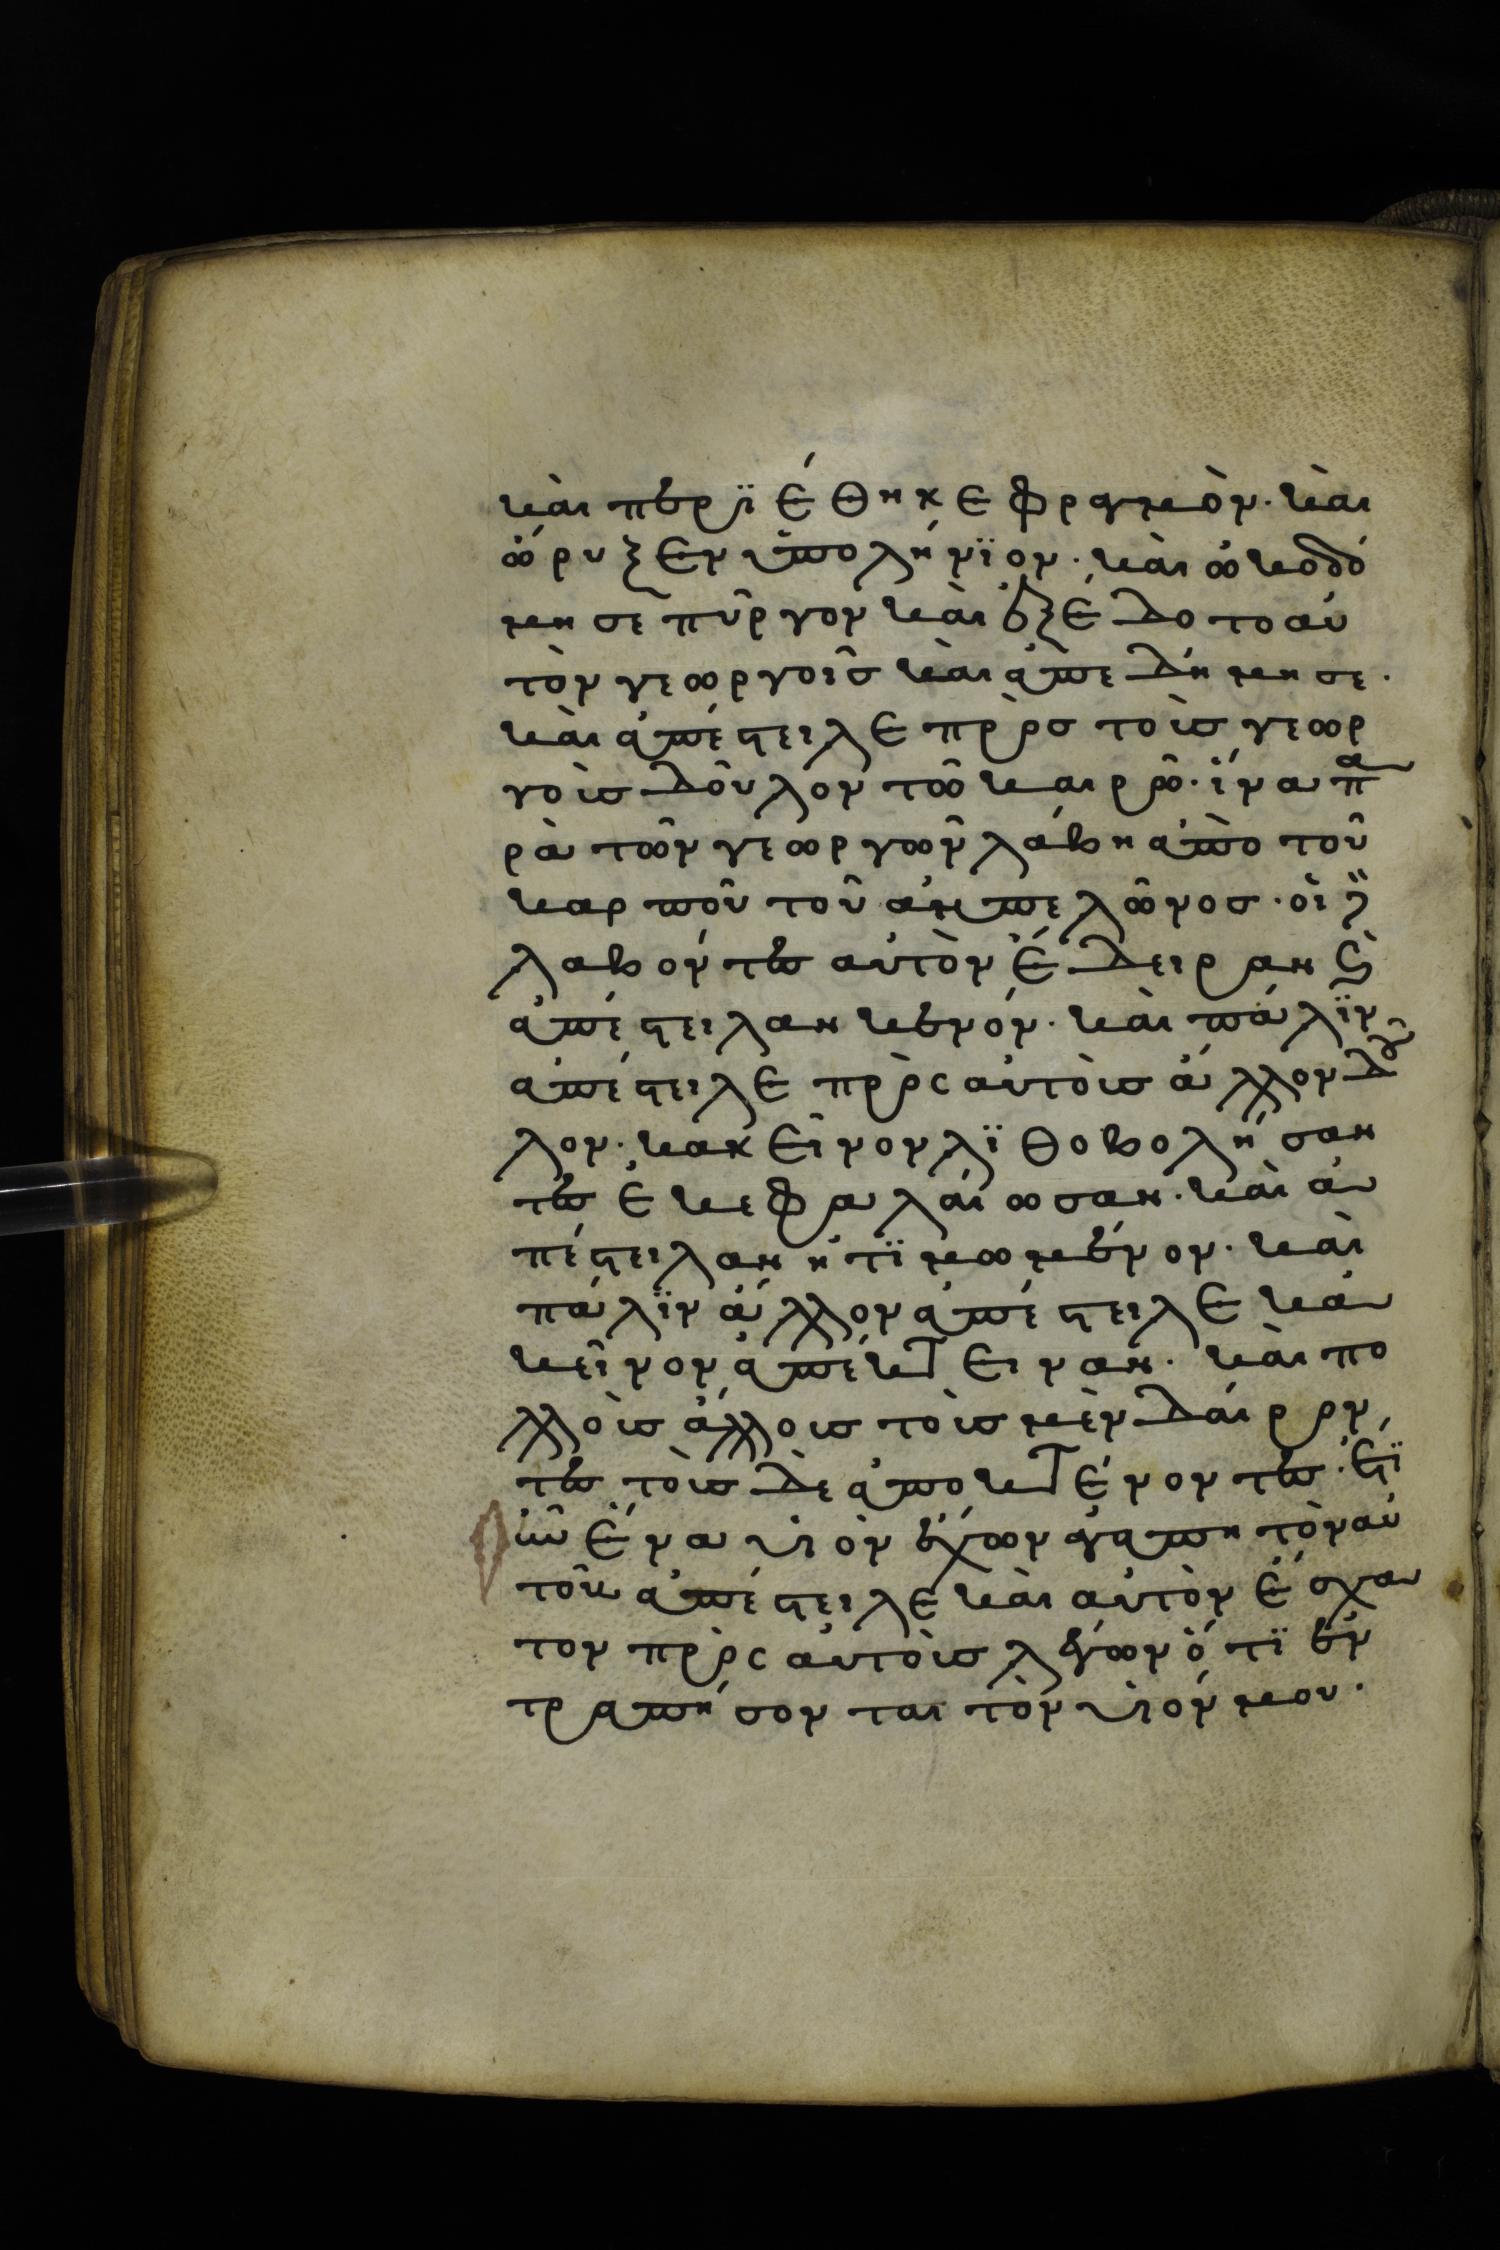 καὶ περϊέθηκε φραγμὸν· καὶ
ὤρυξεν ὑπολήνϊον· καὶ ὠκοδό
μησε πῦργον καὶ ἐξέδοτο αὐ
τὸν γεωργοῖς καὶ ἀπεδήμησε·
καὶ ἀπέστειλε πρὸς τοὺς γεωρ
γοὺς δοῦλον τῶ καιρῶ· ἵνα πα
ρὰ τῶν γεωργῶν λάβη ἀπὸ τοῦ
καρποῦ τοῦ ἀμπελῶνος· οἱ δὲ
λαβόντες αὐτὸν ἔδειραν καὶ
ἀπέστειλαν κενόν· καὶ πάλϊν
ἀπέστειλε πρὸς αὐτοὺς ἄλλον δοῦ
λον· κακεῖνον λϊθοβολήσαν
τες ἐκεφαλαίωσαν· καὶ ἀ
πέστειλαν ἠτϊμωμένον· καὶ
πάλϊν ἄλλον ἀπέστειλε κα
κεῖνον ἀπέκτειναν· καὶ πο
λλοὺς ἄλλους τοὺς μὲν δαίρον
τες τοὺς δὲ ἀποκτένοντες· ἔτϊ
οὖν ἕνα υἱὸν ἔχων ἀγαπητὸν αὐ
τοῦ ἀπέστειλε καὶ αὐτὸν ἔσχα
τον πρὸς αὐτοὺς λέγων ὅτϊ ἐν
τραπήσονται τὸν υἱόν μου·